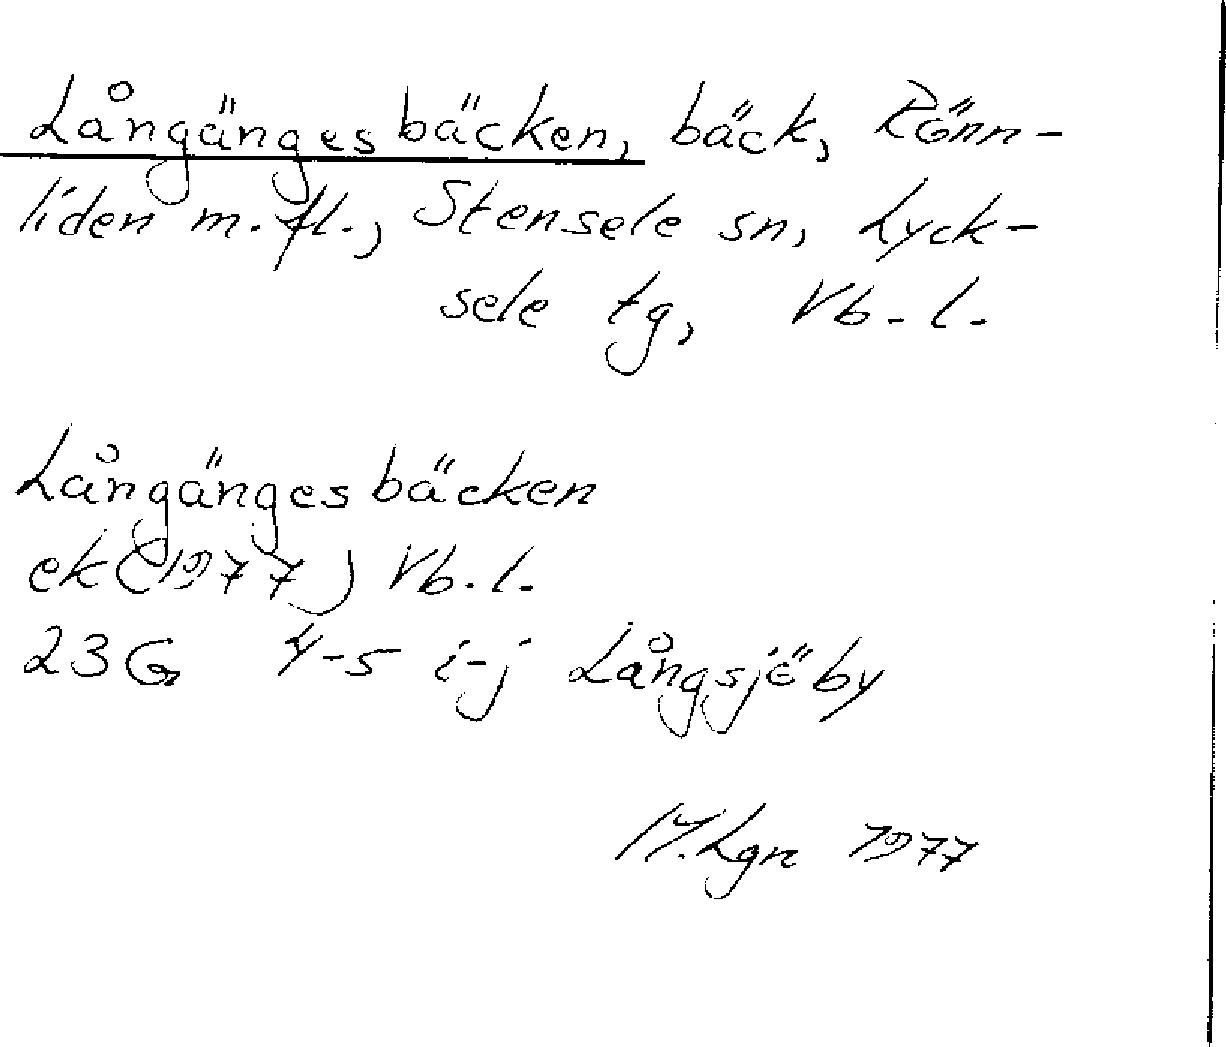 Långängesbäcken, bäck, Rönn-
liden m.fl., Stensele sn, Lyck-
sele tg, Vb.l.
Långängesbäcken
ek(1977) Vb.l.
23G 4-5 i-j Långsjöby
Lgn 1977